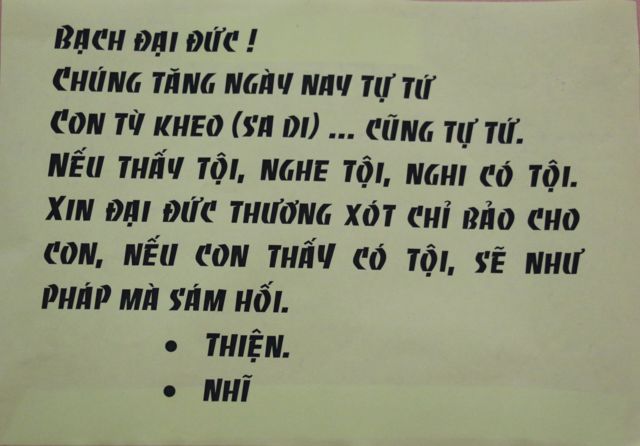 BẠCH ĐẠI ĐỨC !
CHÚNG TĂNG NGÀY NAY TỰ TỨ
CON TỲ KHEO (SA DI) ... CŨNG TỰ TỨ.
NẾU THẤY TỘI, NGHE TỘI, NGHI CÓ TỘI.
XIN ĐẠI ĐỨC THƯƠNG XÓT CHỈ BẢO CHO
CON, NẾU CON THẤY CÓ TỘI, SẼ NHƯ
PHÁP MÀ SÁM HỐI.
• THIỆN.
• NHĨ